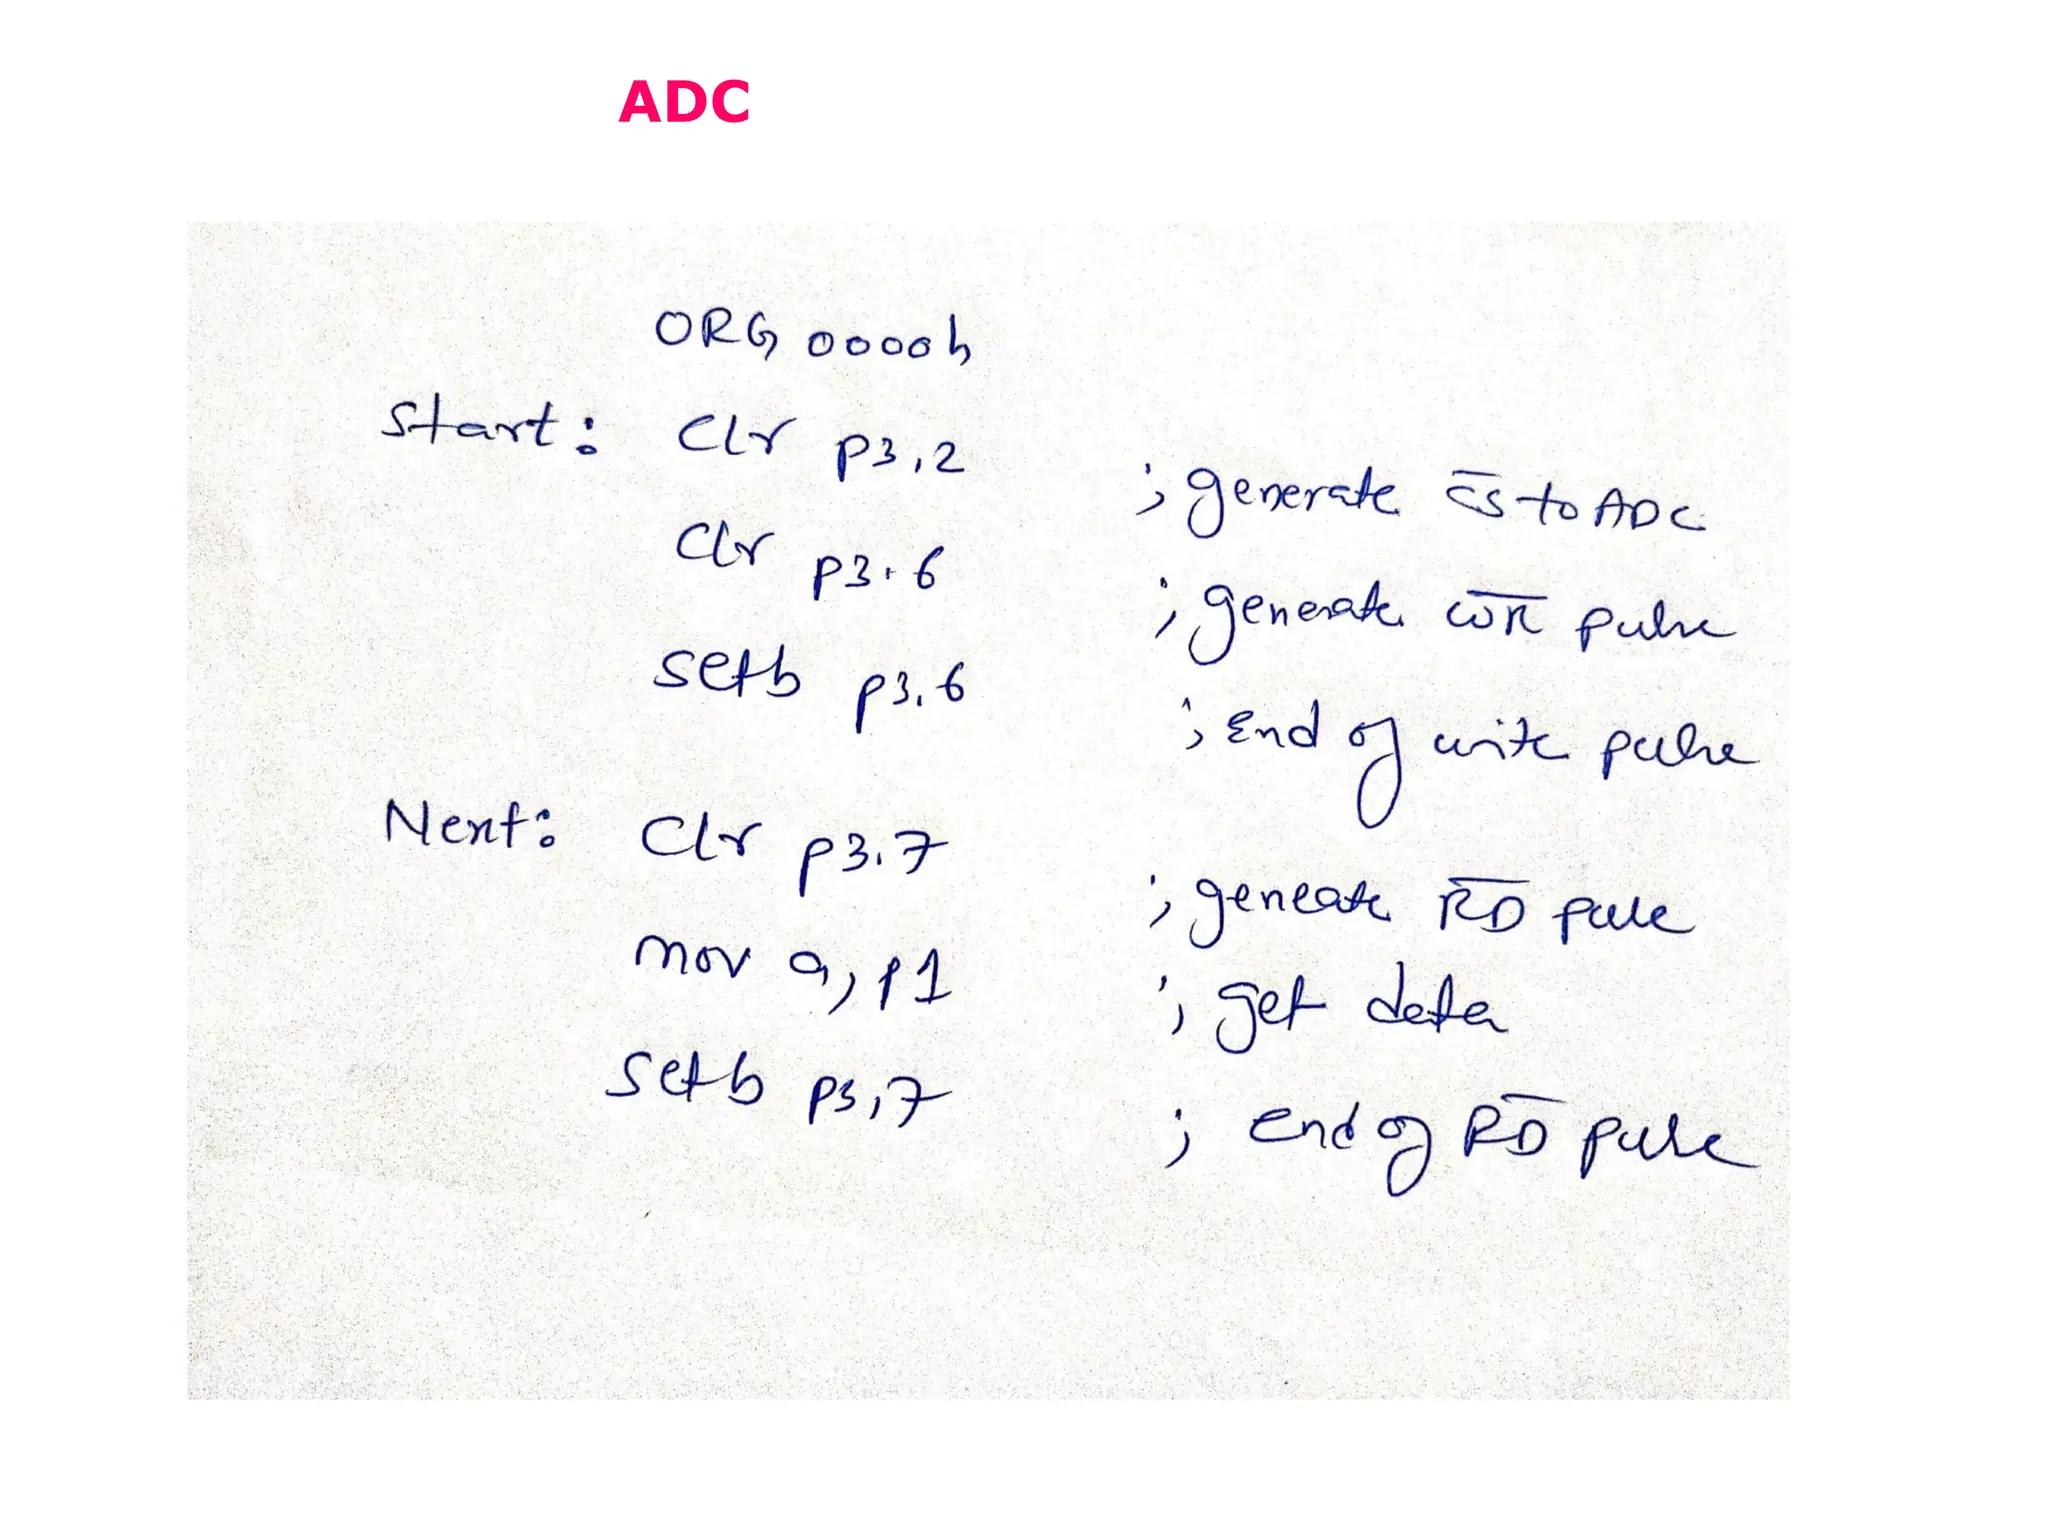 ADC
ORG 0000h
Start: Clr p3.2 ; generate C̅S̅ to ADC
Clr p3.6 ; generate W̅R̅ pulse
Setb p3.6 ; End of write pulse
Next: Clr p3.7 ; geneate R̅D̅ pulse
mov a, p1 ; get data
Setb p3.7 ; end of R̅D̅ pulse